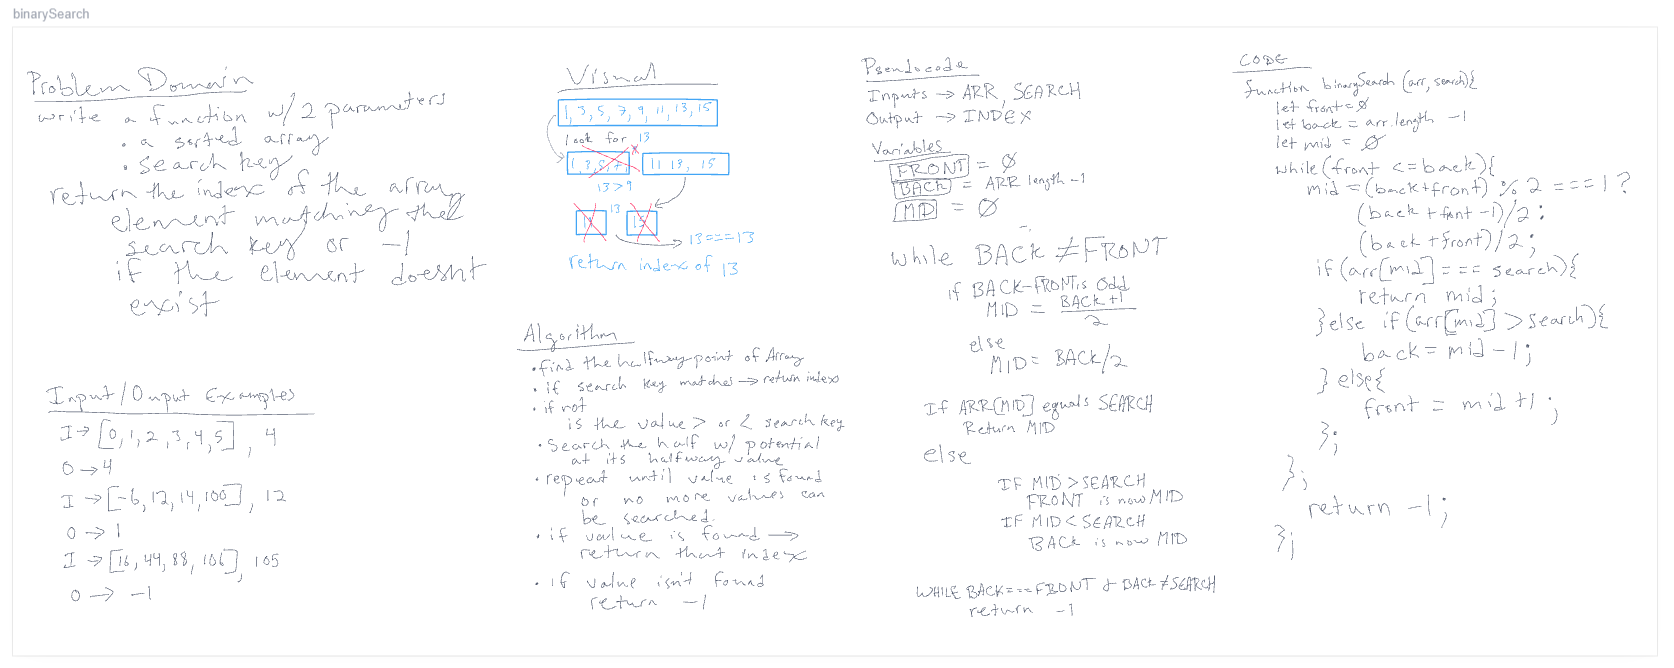 binarySearch
Problem Domain
write a function w/ 2 parameters
• a sorted array
• search key
return the index of the array
element matching the
search key or -1
if the element doesnt
exist
Input/Ouput Examples
I → [0,1,2,3,4,5], 4
O → 4
I → [-6,12,14,100], 12
O → 1
I → [16,49,88,106], 105
O → -1
Visual
1, 3, 5, 7, 9, 11, 13, 15
look for 13
1, 3, 5, 7 x 11 13, 15
13>9
13
11 15
13===13
return index of 13
Algorithm
• find the halfway point of Array
• if search key matches → return index
• if not
is the value > or < search key
• Search the half w/ potential
at its halfway value
• repeat until value is found
or no more values can
be searched.
• if value is found →
return that index
• if value isn't found
return -1
Pseudocode
Inputs → ARR, SEARCH
Output → INDEX
Variables
FRONT = 0
BACK = ARR length -1
MID = 0
while BACK ≠ FRONT
if BACK-FRONT is odd
MID = BACK+1
2
else
MID = BACK/2
If ARR[MID] equals SEARCH
Return MID
else
IF MID > SEARCH
FRONT is now MID
IF MID < SEARCH
BACK is now MID
WHILE BACK===FRONT & BACK≠SEARCH
return -1
CODE
function binarySearch (arr, search){
let front=0
let back = arr.length -1
let mid = 0
while(front <=back){
mid =(back+front) % 2 === 1 ?
(back +front -1)/2 :
(back +front)/2;
if(arr[mid] === search){
return mid;
}else if(arr[mid] > search){
back = mid -1;
} else{
front = mid +1 ;
};
};
return -1;
};